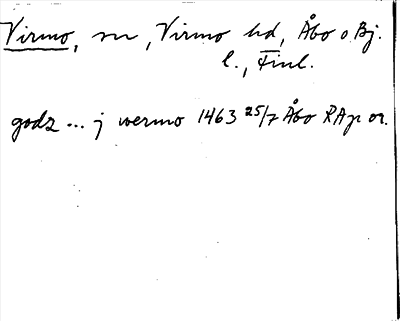 Virmo, sn, Virmo hd, Åbo o Bj.
l., Finl.
godz ... j wermo 1463 25/7 Åbo RAp or.